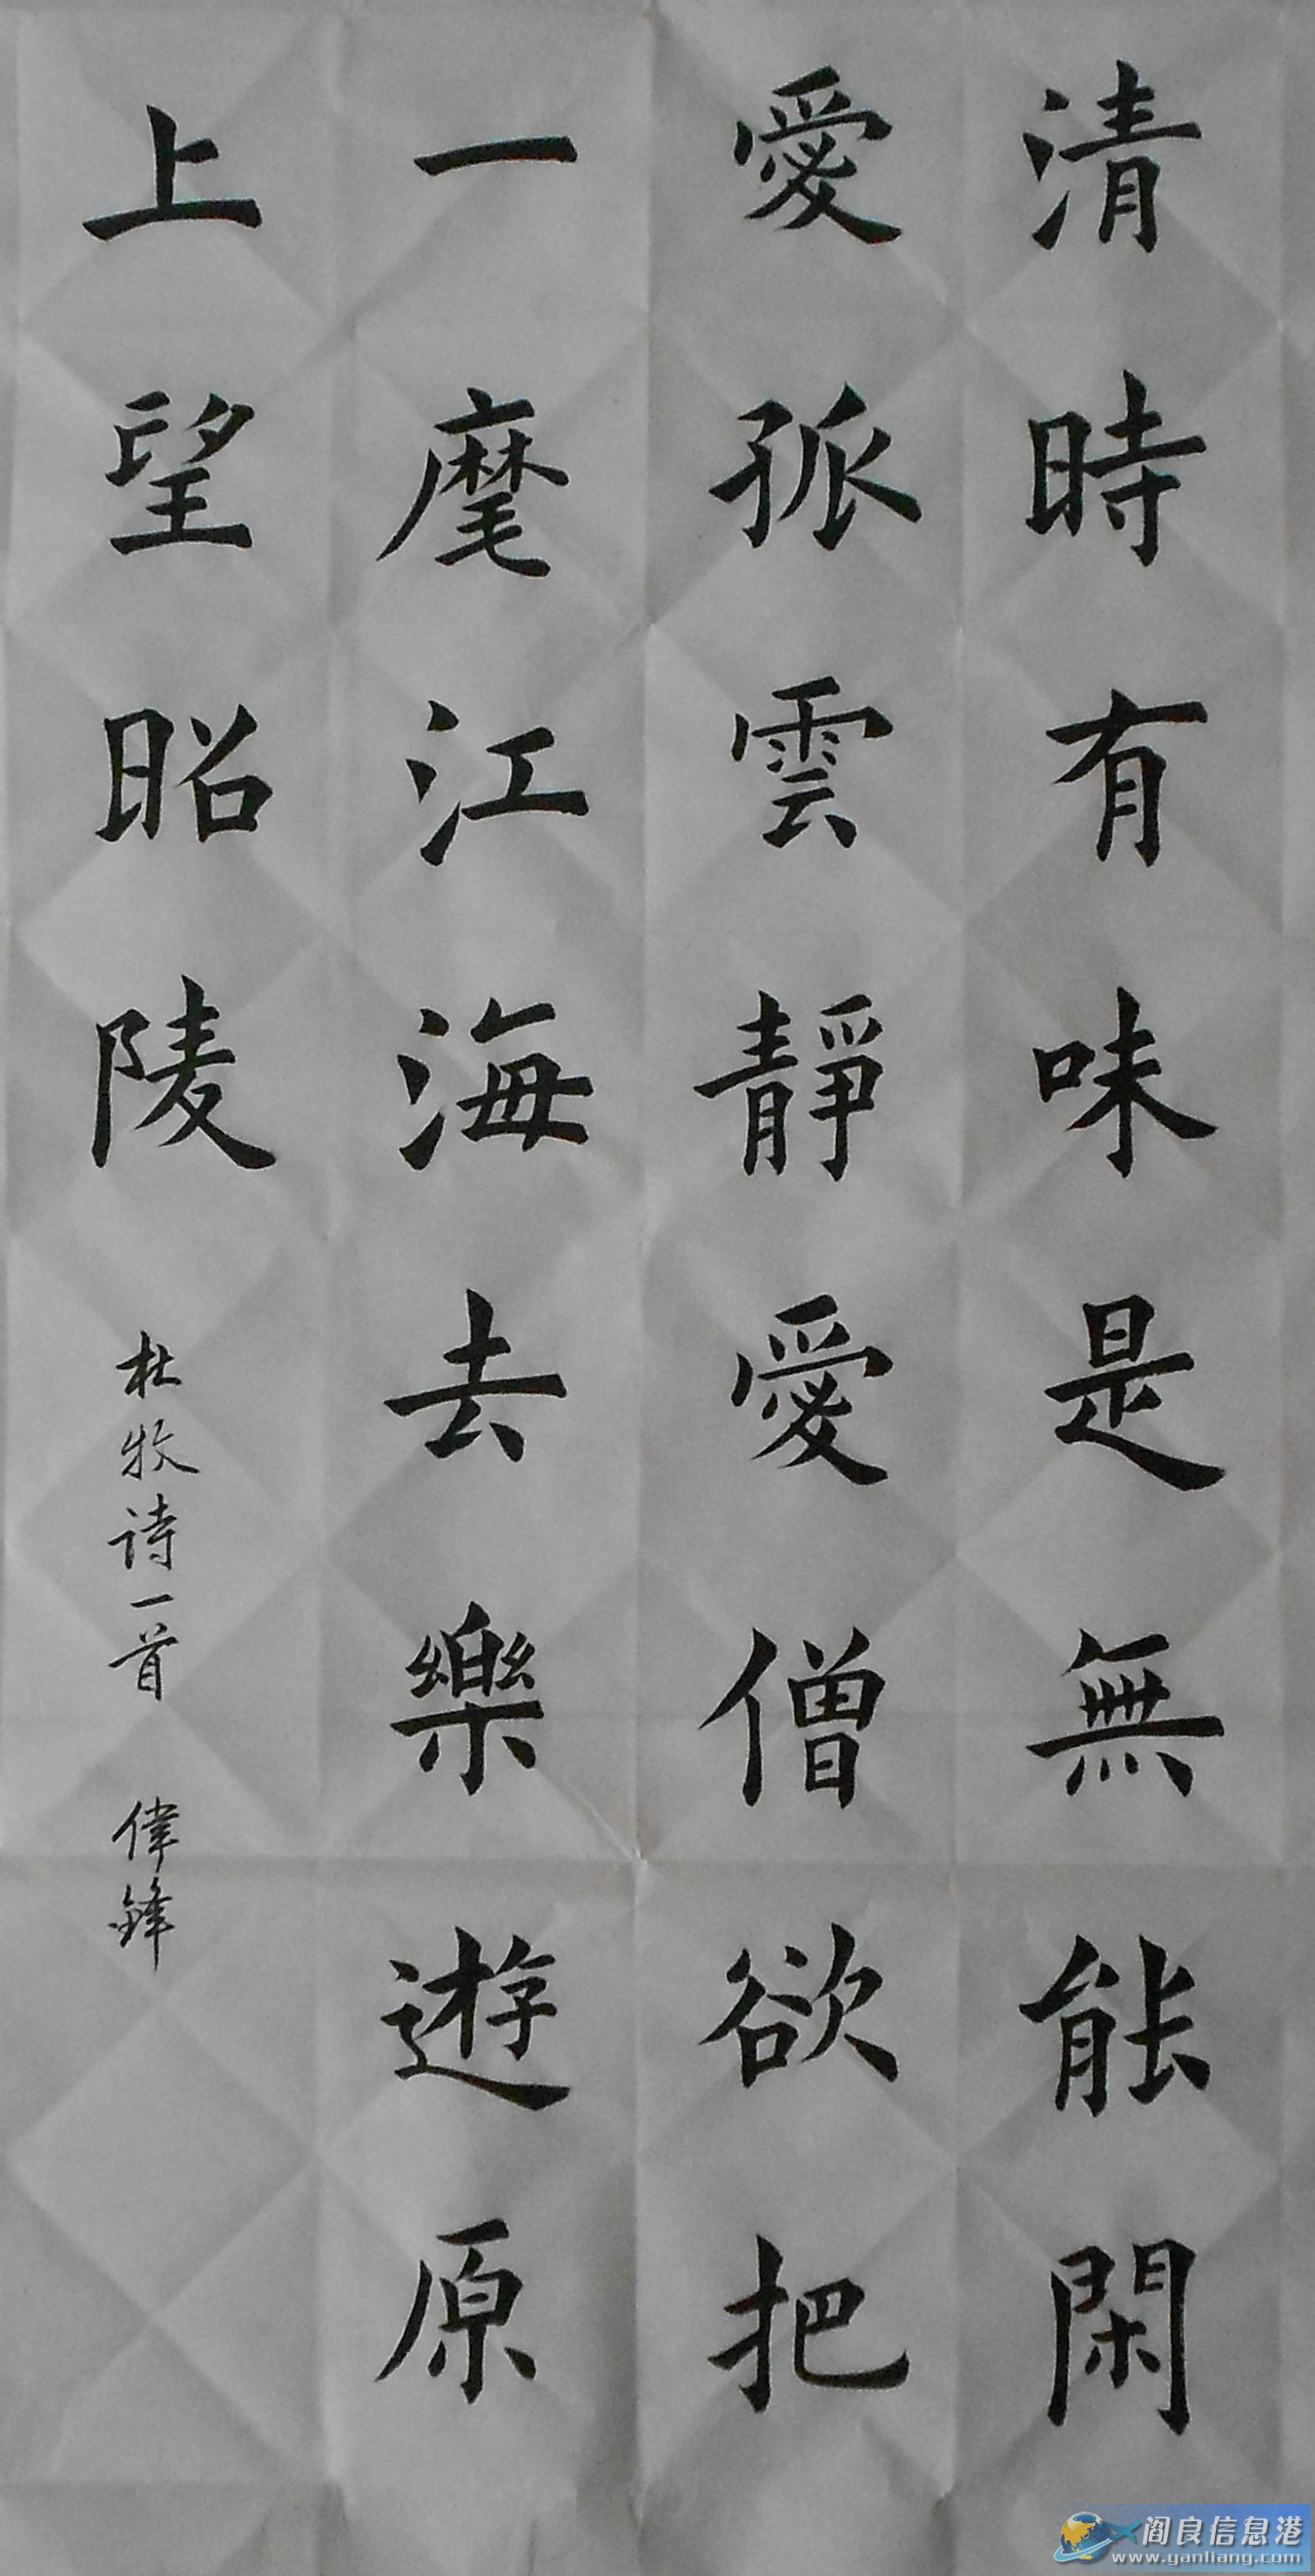 清時有味是無能閑
愛孤雲靜愛僧欲把
一麾江海去樂遊原
上望昭陵
杜牧诗一首 偉鋒
阎良信息港
www.yanliang.com